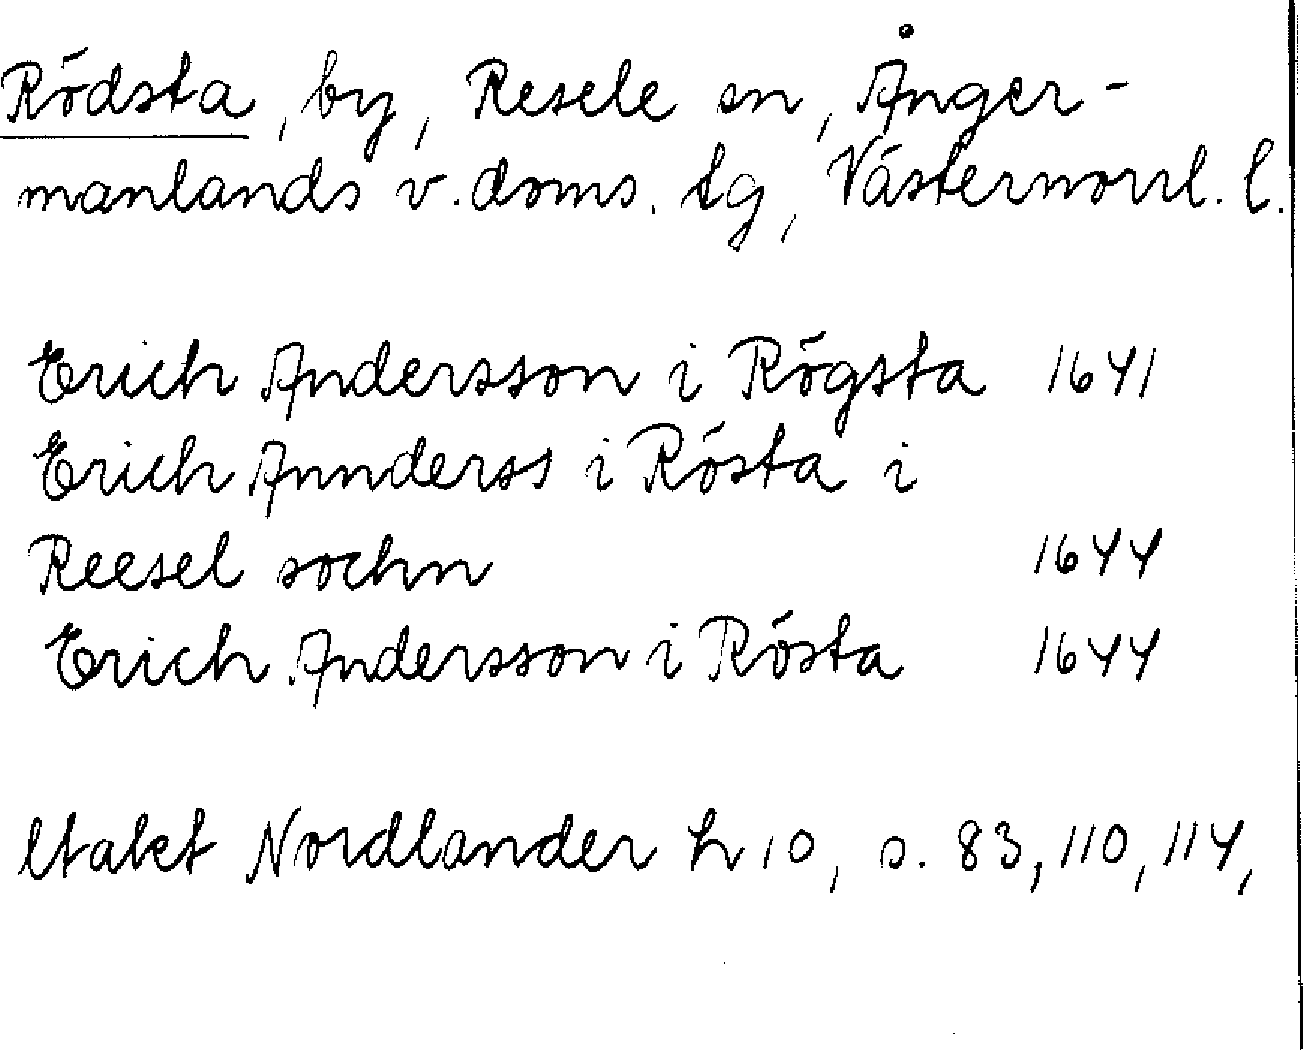 Rödsta, by, Resele sn, Ånger-
manlands v. doms. tg, Västernorrl. l.
Erich Andersson i Rögsta 1641
Erich Annderss i Rösta i
Reesel sochn 1644
Erich Andersson i Rösta 1644
Utakt Nordlander h 10, s. 83, 110, 114,